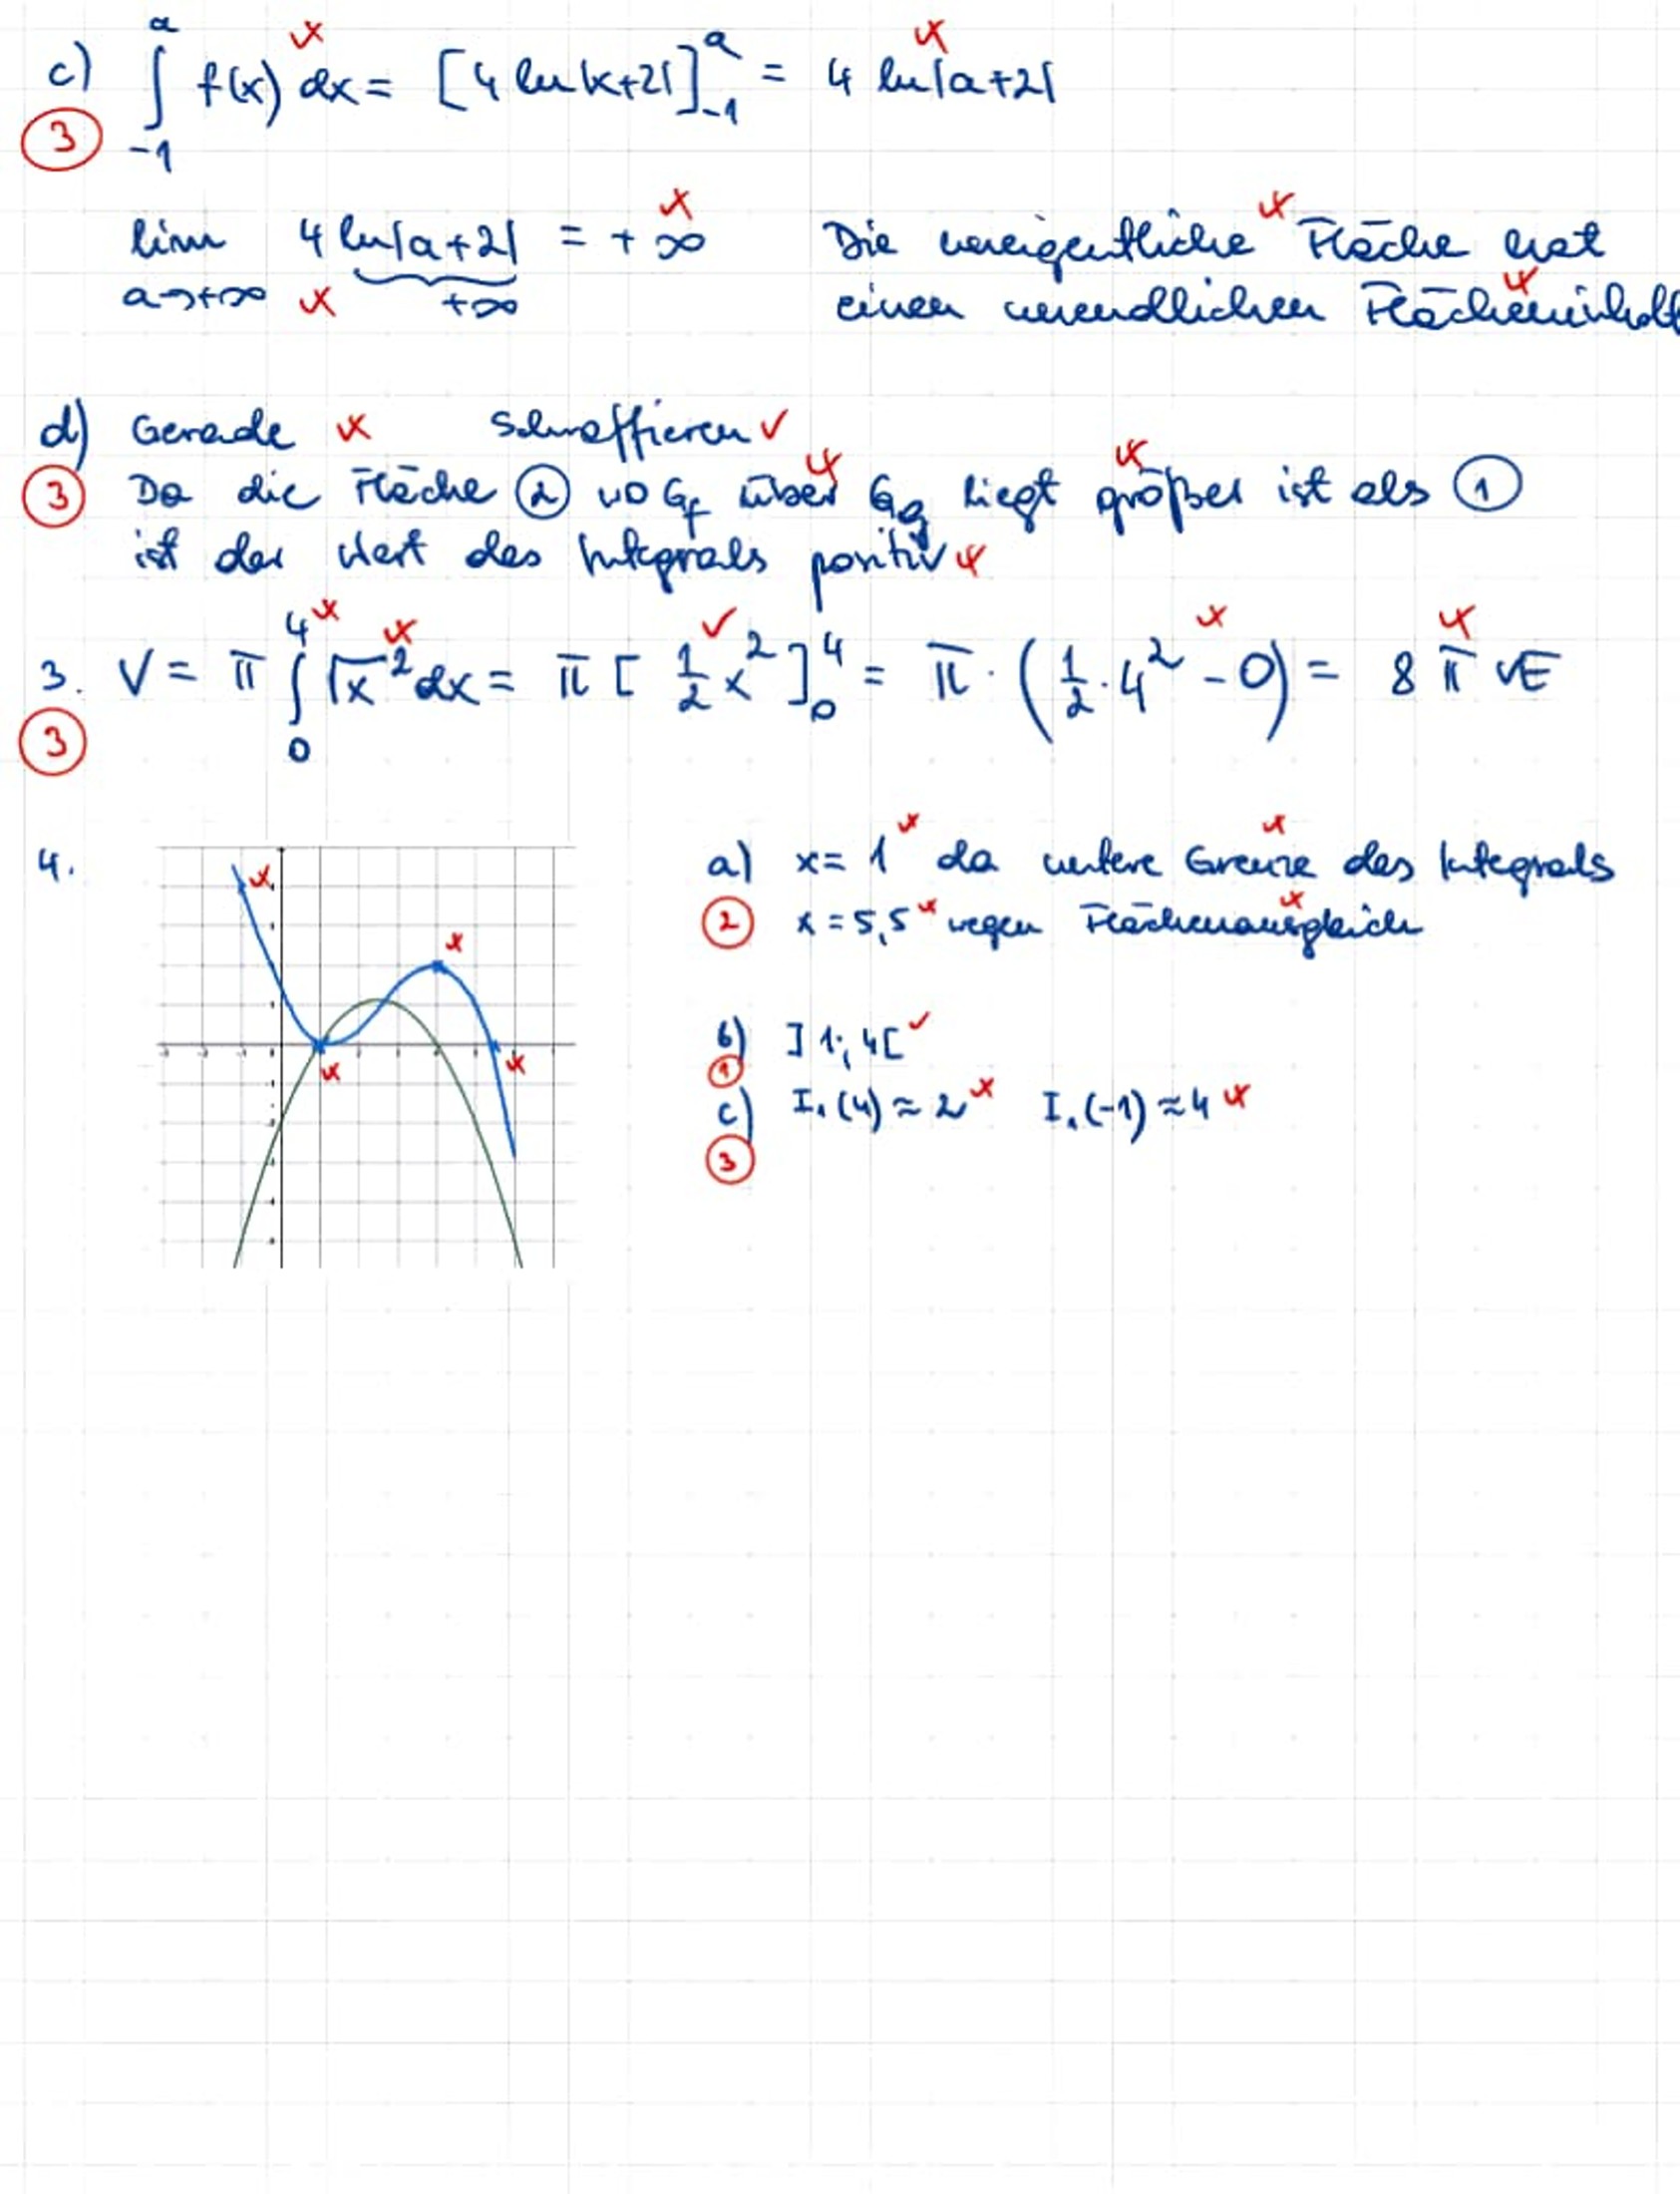 c) ∫₋₁ᵃ f(x) dx = [4 ln|x+2|]₋₁ᵃ = 4 ln|a+2|
③
lim a→+∞ 4 ln|a+2| = +∞ Die uneigentliche Fläche hat
+∞ einen unendlichen Flächeninhalt
d) Gerade Schraffieren
③ Da die Fläche ② wo G_f über G_g liegt größer ist als ①
ist der Wert des Integrals positiv
3. V = π ∫₀⁴ √x² dx = π [½ x²]₀⁴ = π · (½ · 4² - 0) = 8 π VE
③
4.
a) x = 1 da untere Grenze des Integrals
② x = 5,5 wegen Flächenausgleich
b) ]1; 4[
①
c) I₁(4) ≈ 2 I₁(-1) ≈ 4
③